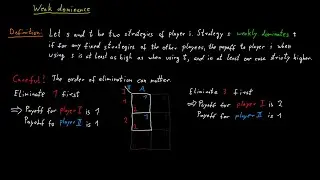 Weak dominance
Definition: Let s and t be two strategies of player i. Strategy s weakly dominates t
if for any fixed strategies of the other players, the payoff to player i when
using s is at least as high as when using t, and in at least one case strictly higher.
Careful! The order of elimination can matter.
Eliminate first
⇒ Payoff for player I is 1
Payoff to player II is 1
A
Eliminate first
⇒ Payoff for player I is 2
Payoff for player II is 1